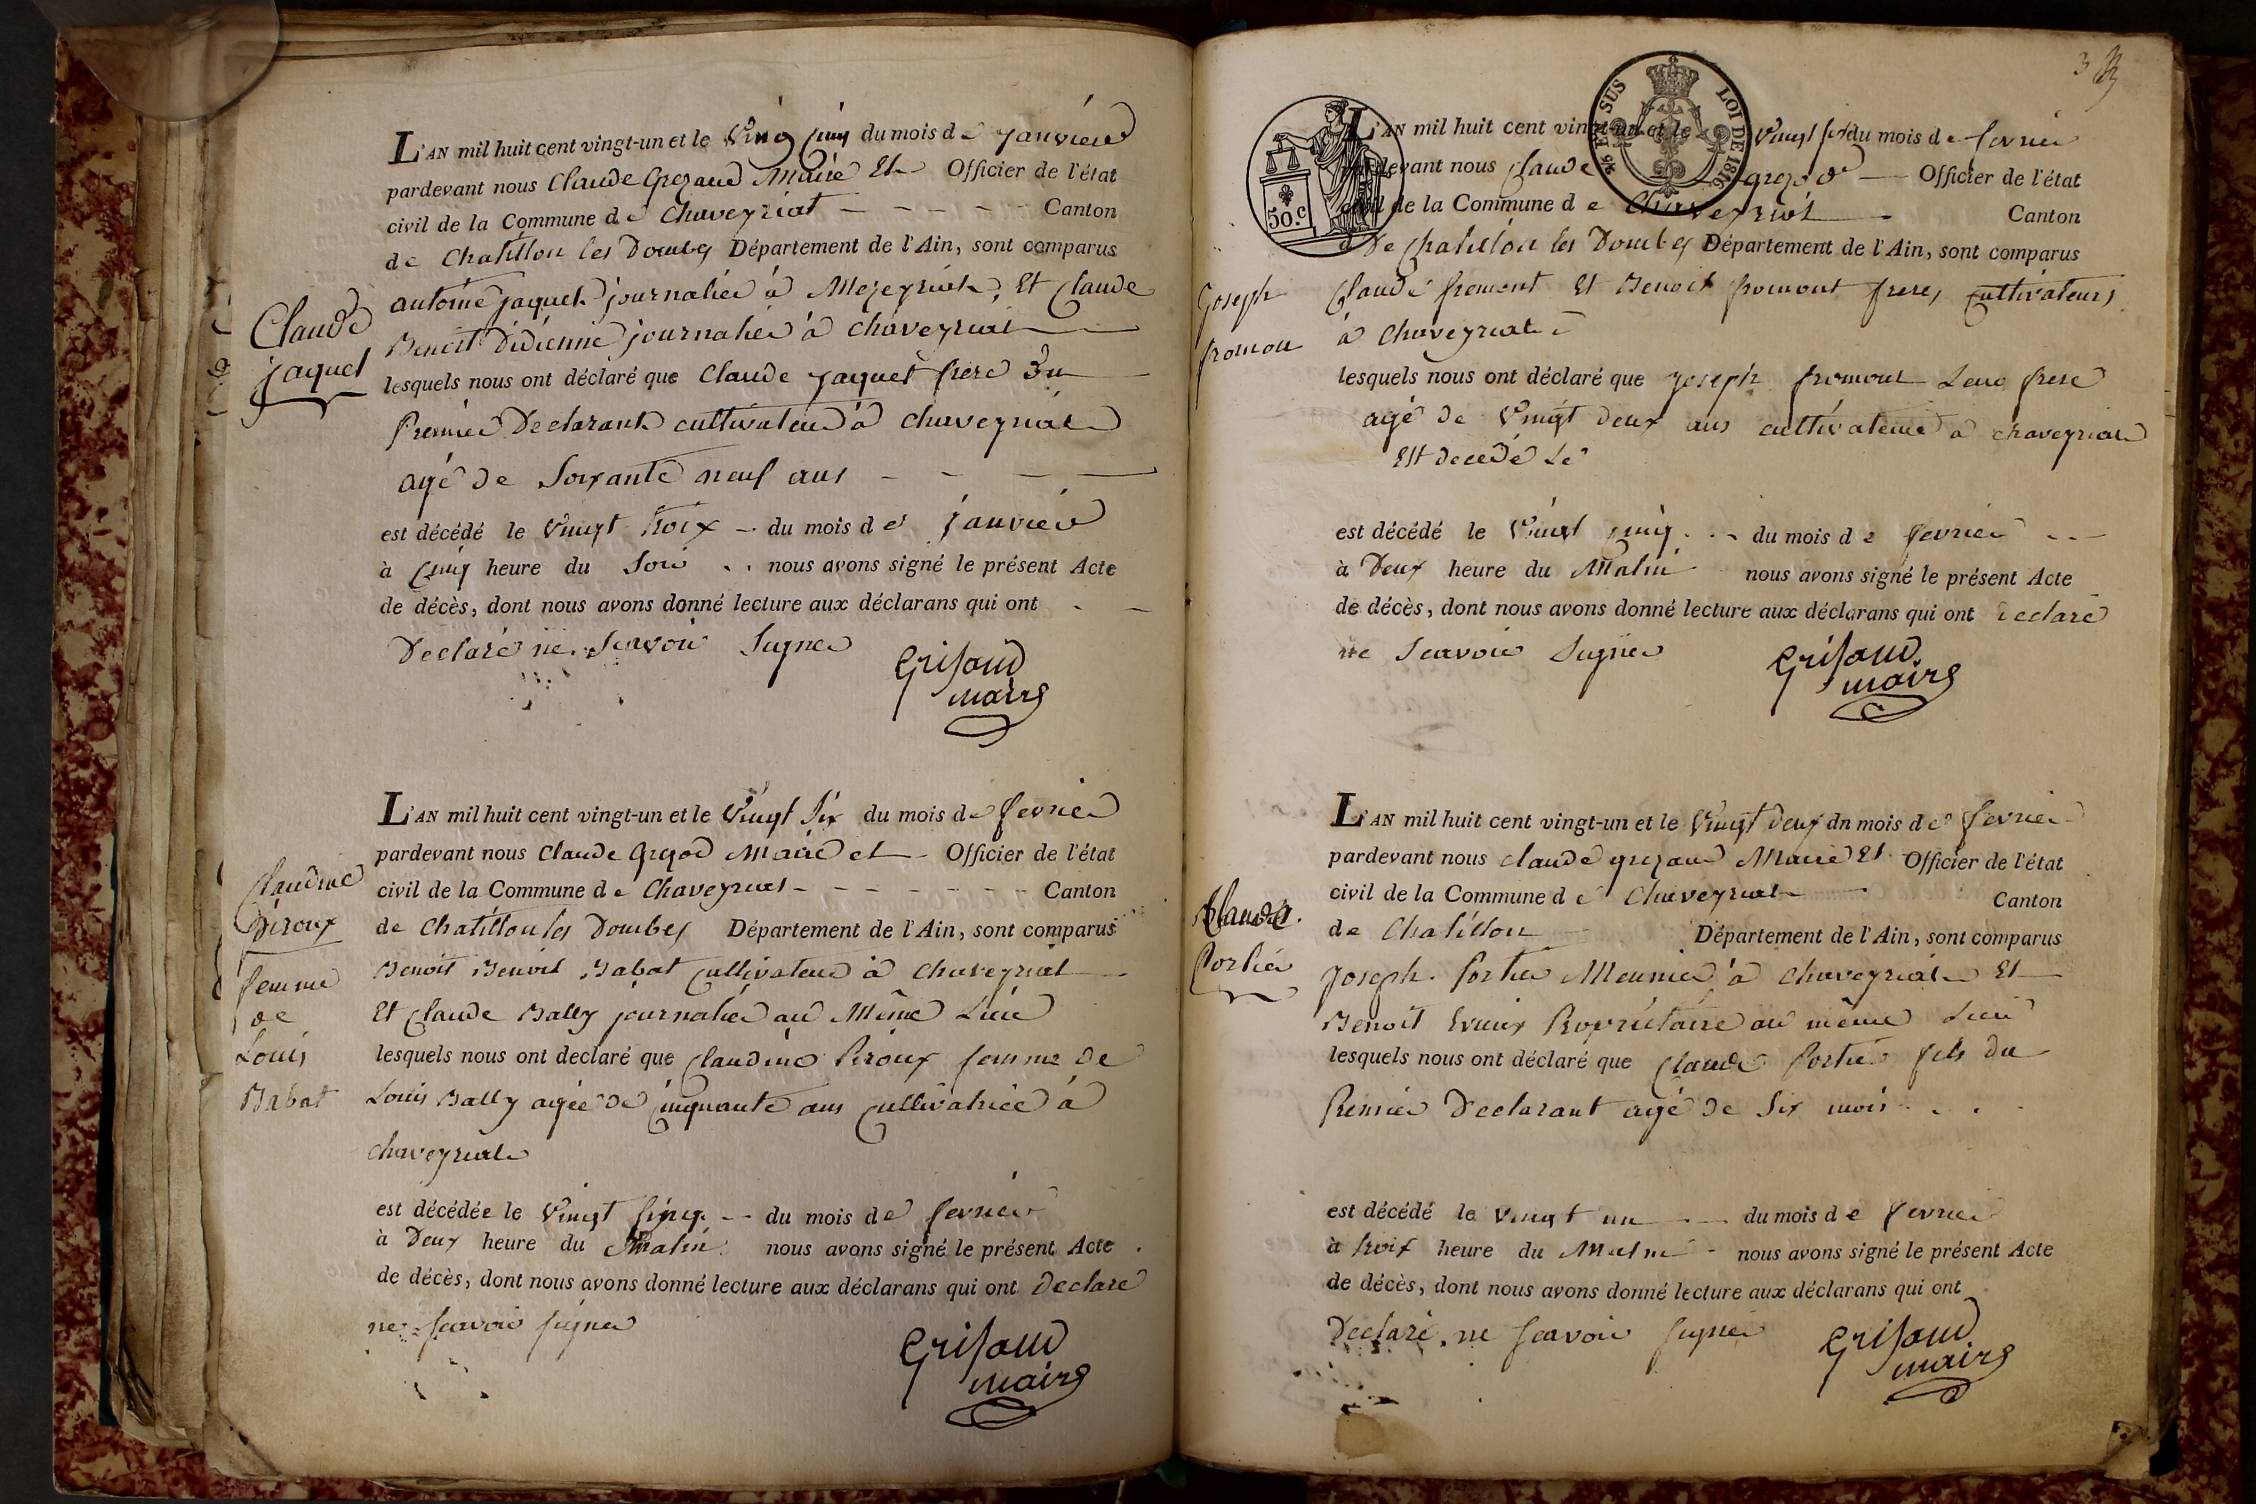 L'AN mil huit cent vingt-un et le Ving Cinq du mois de janvier
pardevant nous Claude Grezaud Maire Et Officier de l'état
civil de la Commune de Chaveyriat Canton
de Chatillon les Dombes Département de l'Ain, sont comparus
Claude
jaquet
antoine jaquet journalier à Mezeyriat, Et Claude
Benoit Didienne journalier à Chaveyriat
lesquels nous ont déclaré que Claude jaquet frere Du
Premier Declarant cultivateur à Chaveyriat
agé de Soixante neuf ans
est décédé le Vingt troix du mois de janvier
à Cinq heure du Soir nous avons signé le présent Acte
de décès, dont nous avons donné lecture aux déclarans qui ont
Declaré ne Scavoir Signer
Grisaud
maire
L'AN mil huit cent vingt-un et le Vingt Six du mois de fevrier
pardevant nous Claude Maire et Officier de l'état
civil de la Commune de Chaveyriat Canton
de Chatillon les Dombes Département de l'Ain, sont comparus
Claudine
Piroux
femme
de
Louis
Babat
Benoit Benoit Babat Cultivateur à Chaveyriat
Et Claude Bally journalier au Même Lieu
lesquels nous ont declaré que Claudine Piroux femme de
Louis Bally agée de Cinquante ans Cultivatrice à
Chaveyriat
est décédée le Vingt Cinq du mois de fevrier
à Deux heure du Matin nous avons signé le présent Acte
de décès, dont nous avons donné lecture aux déclarans qui ont Declaré
ne Scavoir signer
Grisaud
maire
3
50.c
2/6 EN SUS LOI DE 1816
L'AN mil huit cent vingt-un et le Vingt six du mois de fevrier
pardevant nous Claude Officier de l'état
civil de la Commune de Chaveyriat Canton
De Chatillon les Dombes Département de l'Ain, sont comparus
Joseph
fromont
Claude fromont Et Benoit fromont freres cultivateurs
à Chaveyriat
lesquels nous ont déclaré que joseph fromont Leur frere
agé de Vingt deux ans cultivateur à chaveyriat
Est decedé Le
est décédé le Vingt cinq du mois de fevrier
à Deux heure du Matin nous avons signé le présent Acte
de décès, dont nous avons donné lecture aux déclarans qui ont Declaré
ne Scavoir Signer
Grisaud
maire
L'AN mil huit cent vingt-un et le Vingt deux dn mois de fevrier
pardevant nous Claude grezaud Maire Et Officier de l'état
civil de la Commune de Chaveyriat Canton
de Chatillon Département de l'Ain, sont comparus
Claude
Portier
Joseph Portier Meunier à Chaveyriat Et
Benoit Propriétaire au même Lieu
lesquels nous ont déclaré que Claude Portier fils du
Premier Declarant agé de Six mois
est décédé le vingt un du mois de fevrier
à troix heure du Matin nous avons signé le présent Acte
de décès, dont nous avons donné lecture aux déclarans qui ont
Declaré ne scavoir signer
Grisaud
maire